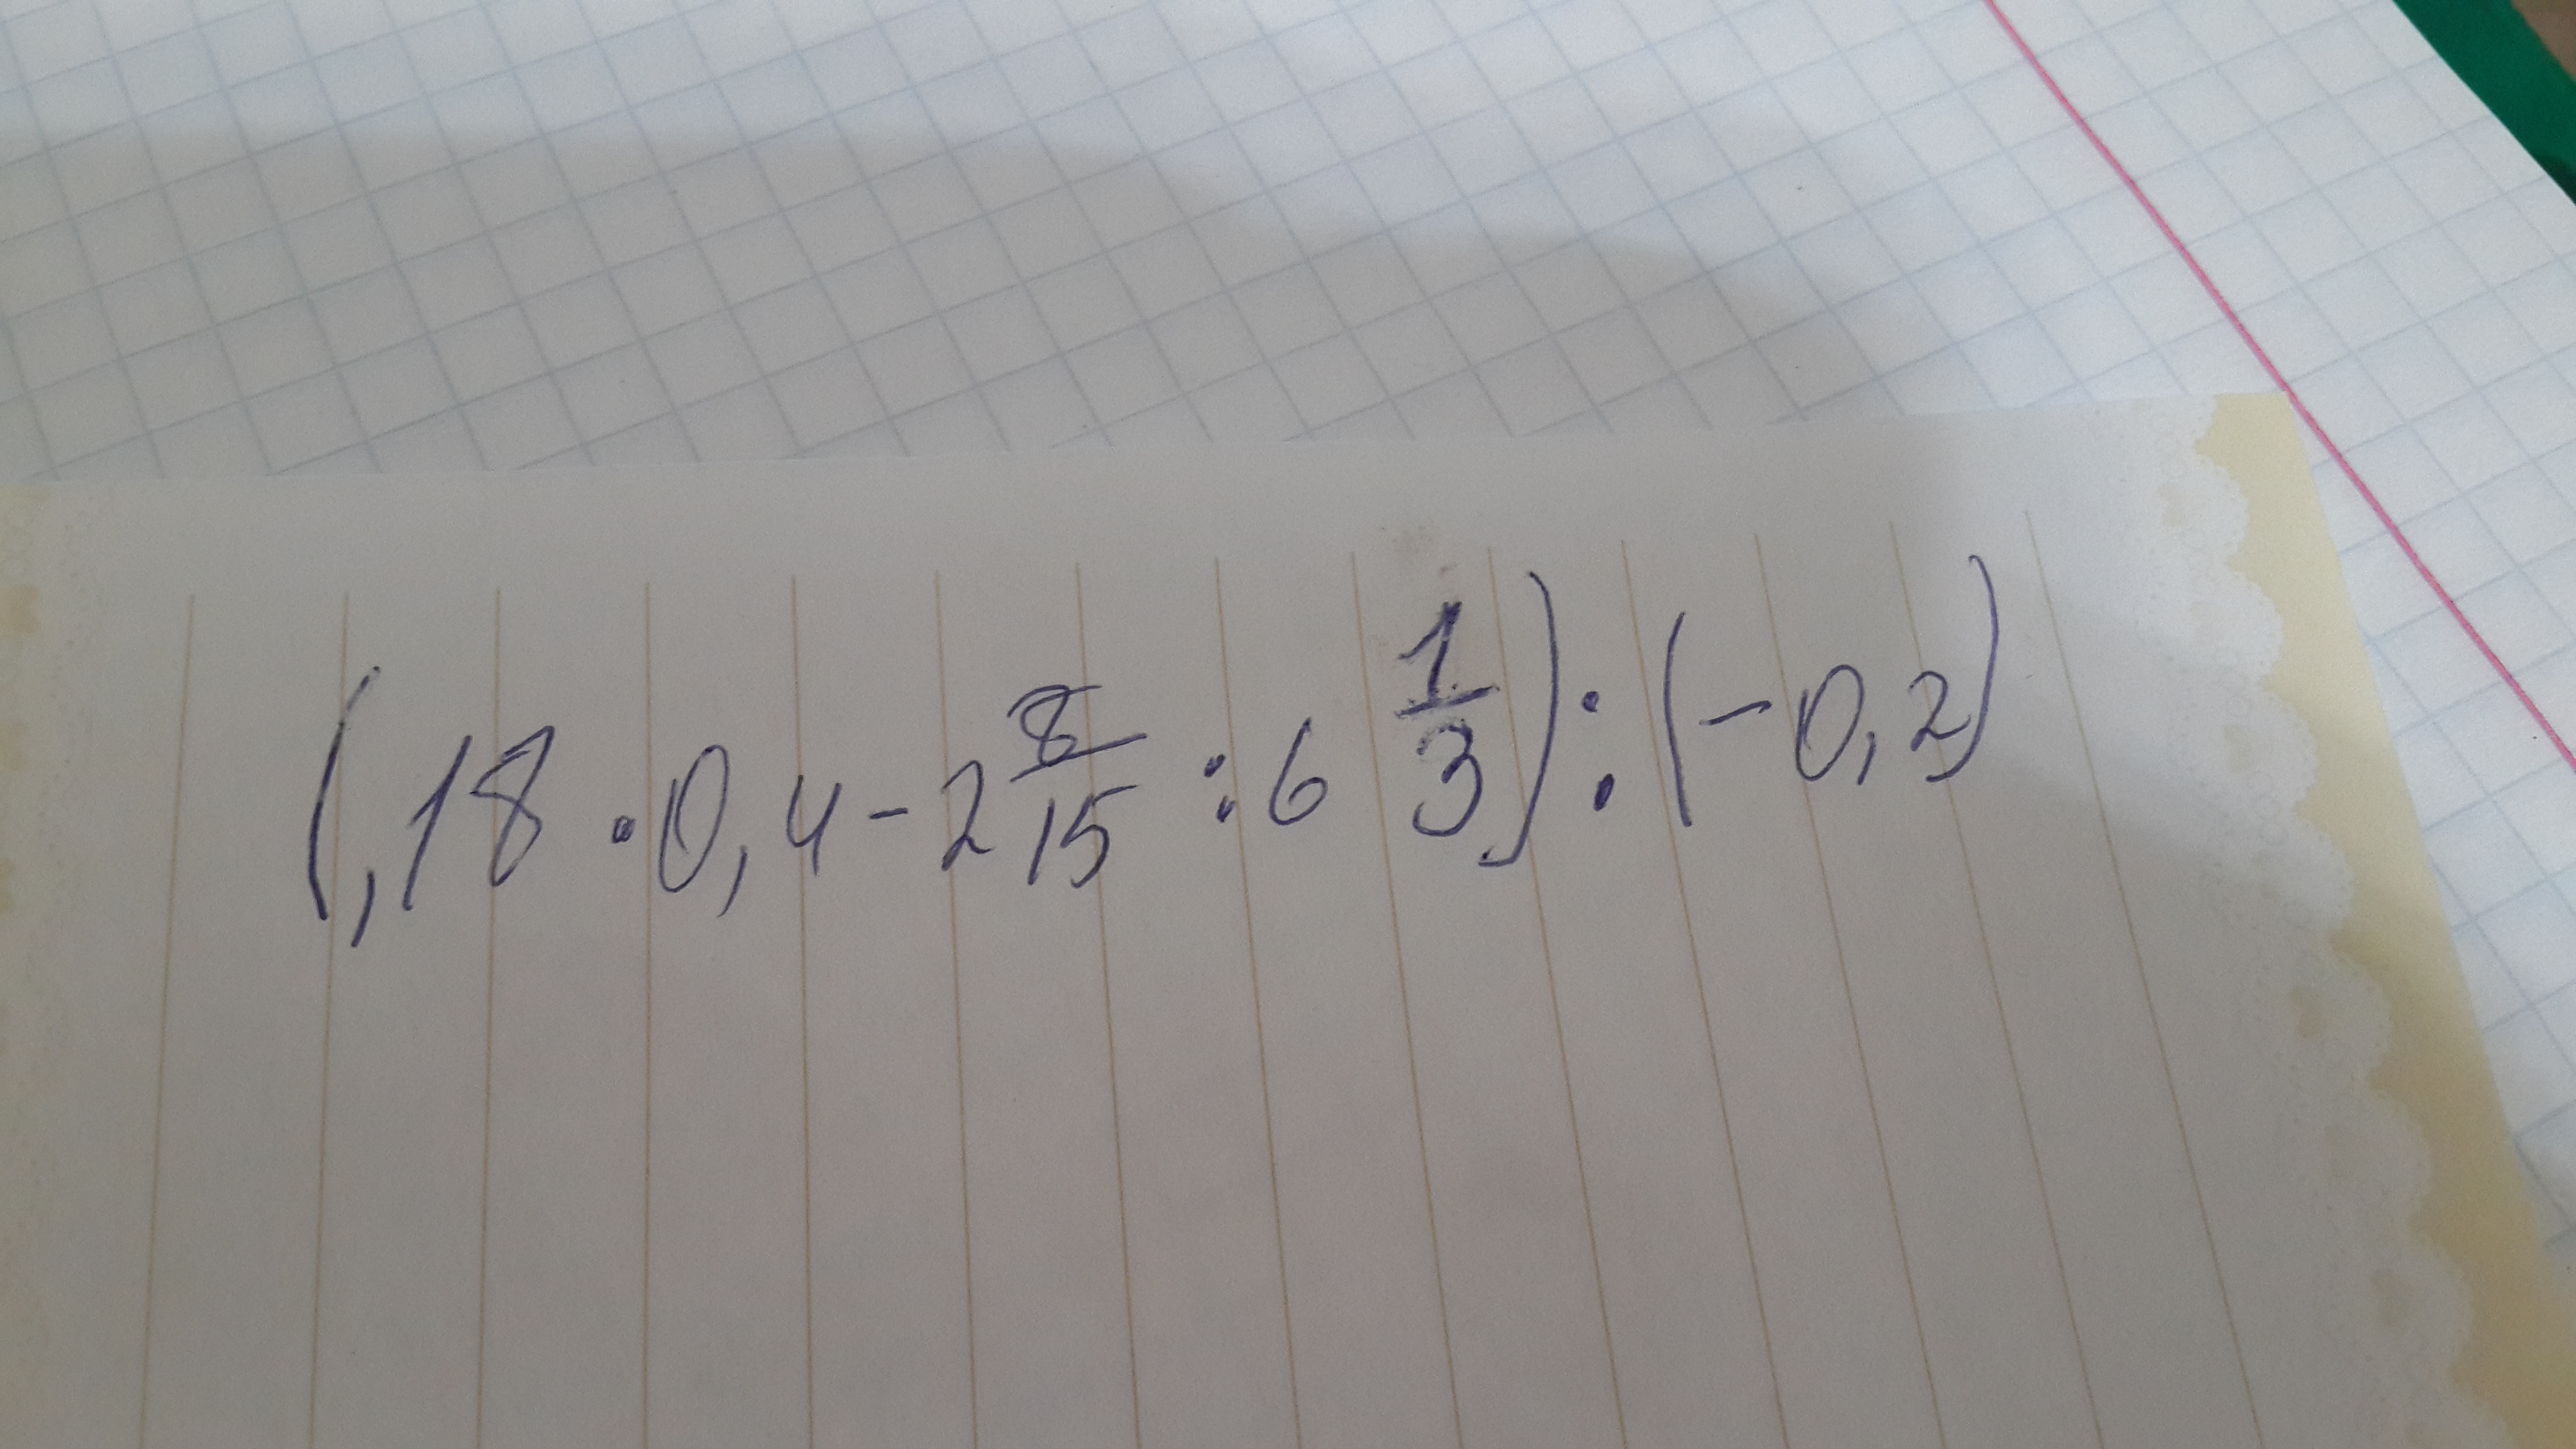 (,18 · 0,4 - 2 8/15 : 6 1/3) : (-0,2)